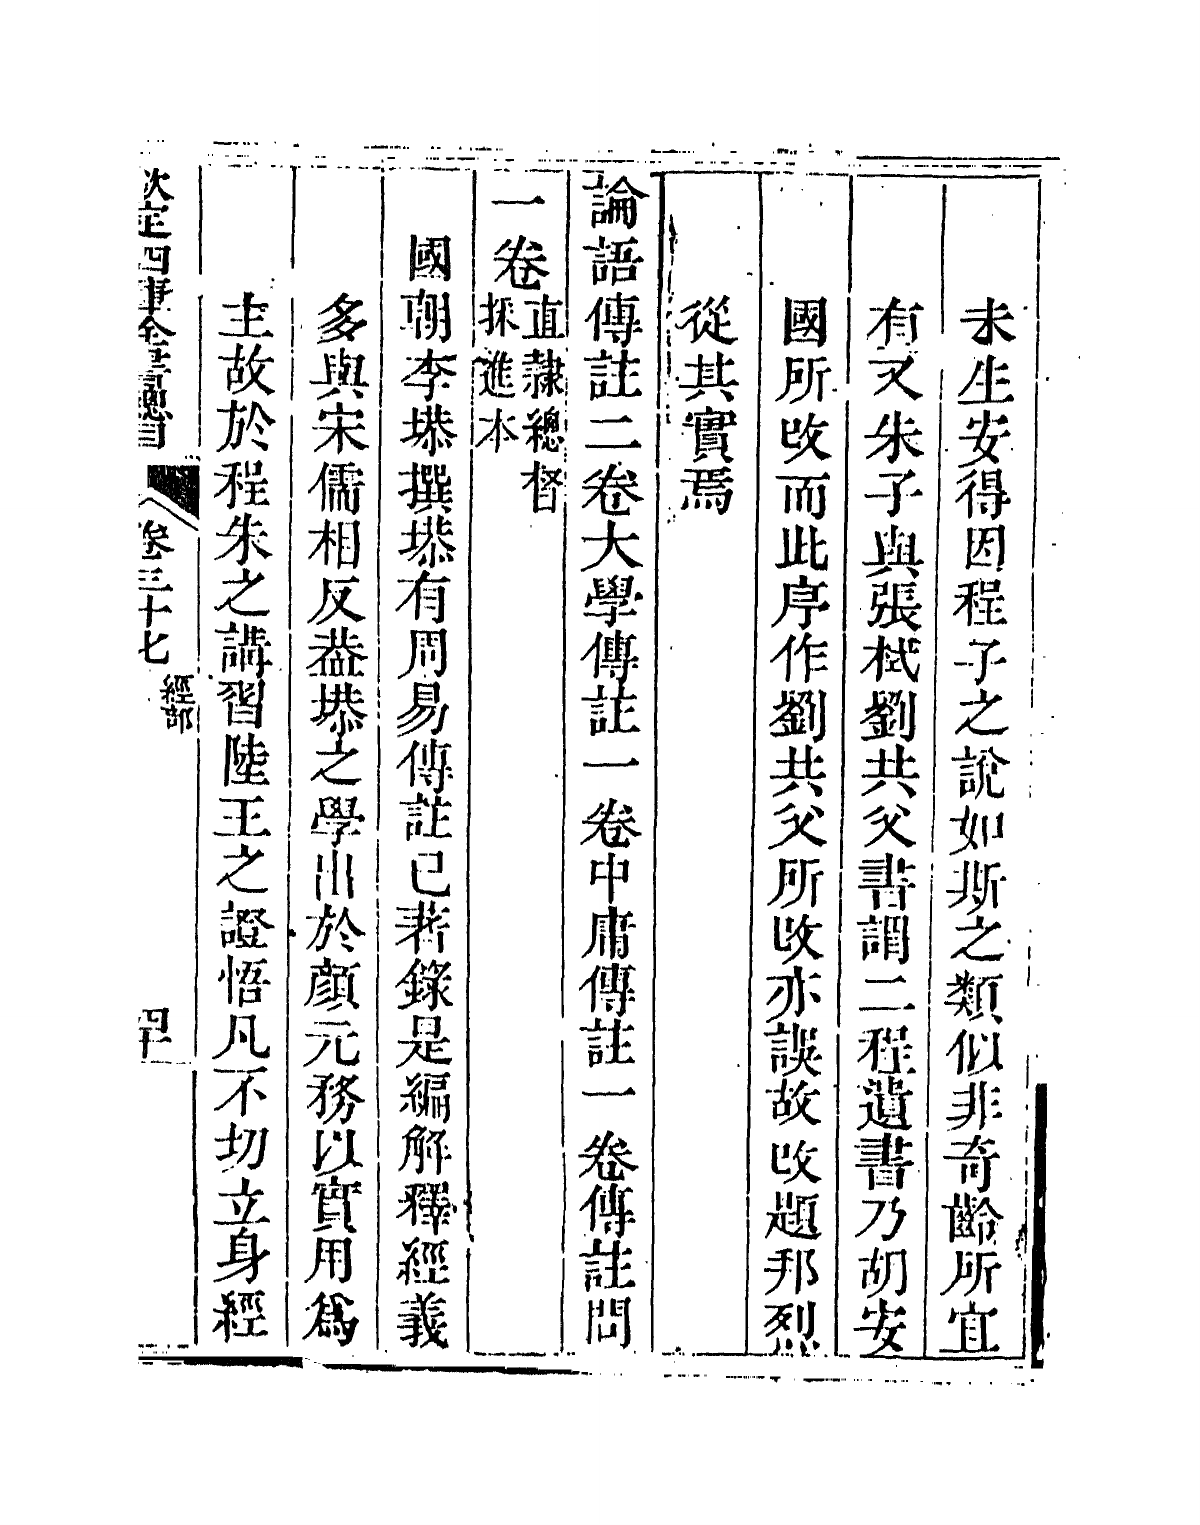 未生安得因程子之說如斯之類似非奇齡所宜
有又朱子與張栻劉共父書謂二程遺書乃胡安
國所改而此序作劉共父所改亦誤故改題邦烈
從其實焉
論語傳註二卷大學傳註一卷中庸傳註一卷傳註問
一卷
直隷總督
採進本
國朝李塨撰塨有周易傳註已著錄是編解釋經義
多與宋儒相反葢塨之學出於顏元務以實用爲
主故於程朱之講習陸王之證悟凡不切立身經
欽定四庫全書總目
卷三十七
經部
四十